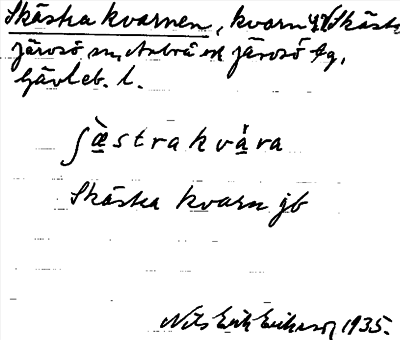 Skästra kvarnen, kvarn Skästr
Järvsö sn, Järvsö tg,
Gävleb. l.
ʃæ̀stra kvàra
Skästra kvarn jb
Nils Erik Eriksson 1935.